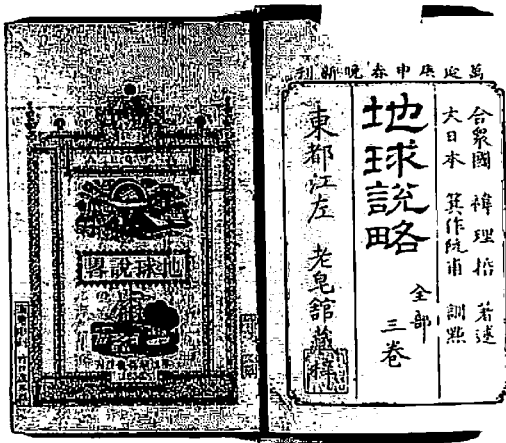 萬延庚申春晚新刊
合衆國 禕理哲 著述
大日本 箕作阮甫 訓點
地球説略 全部 三卷
東都江左 老皂館藏梓
地球說畧